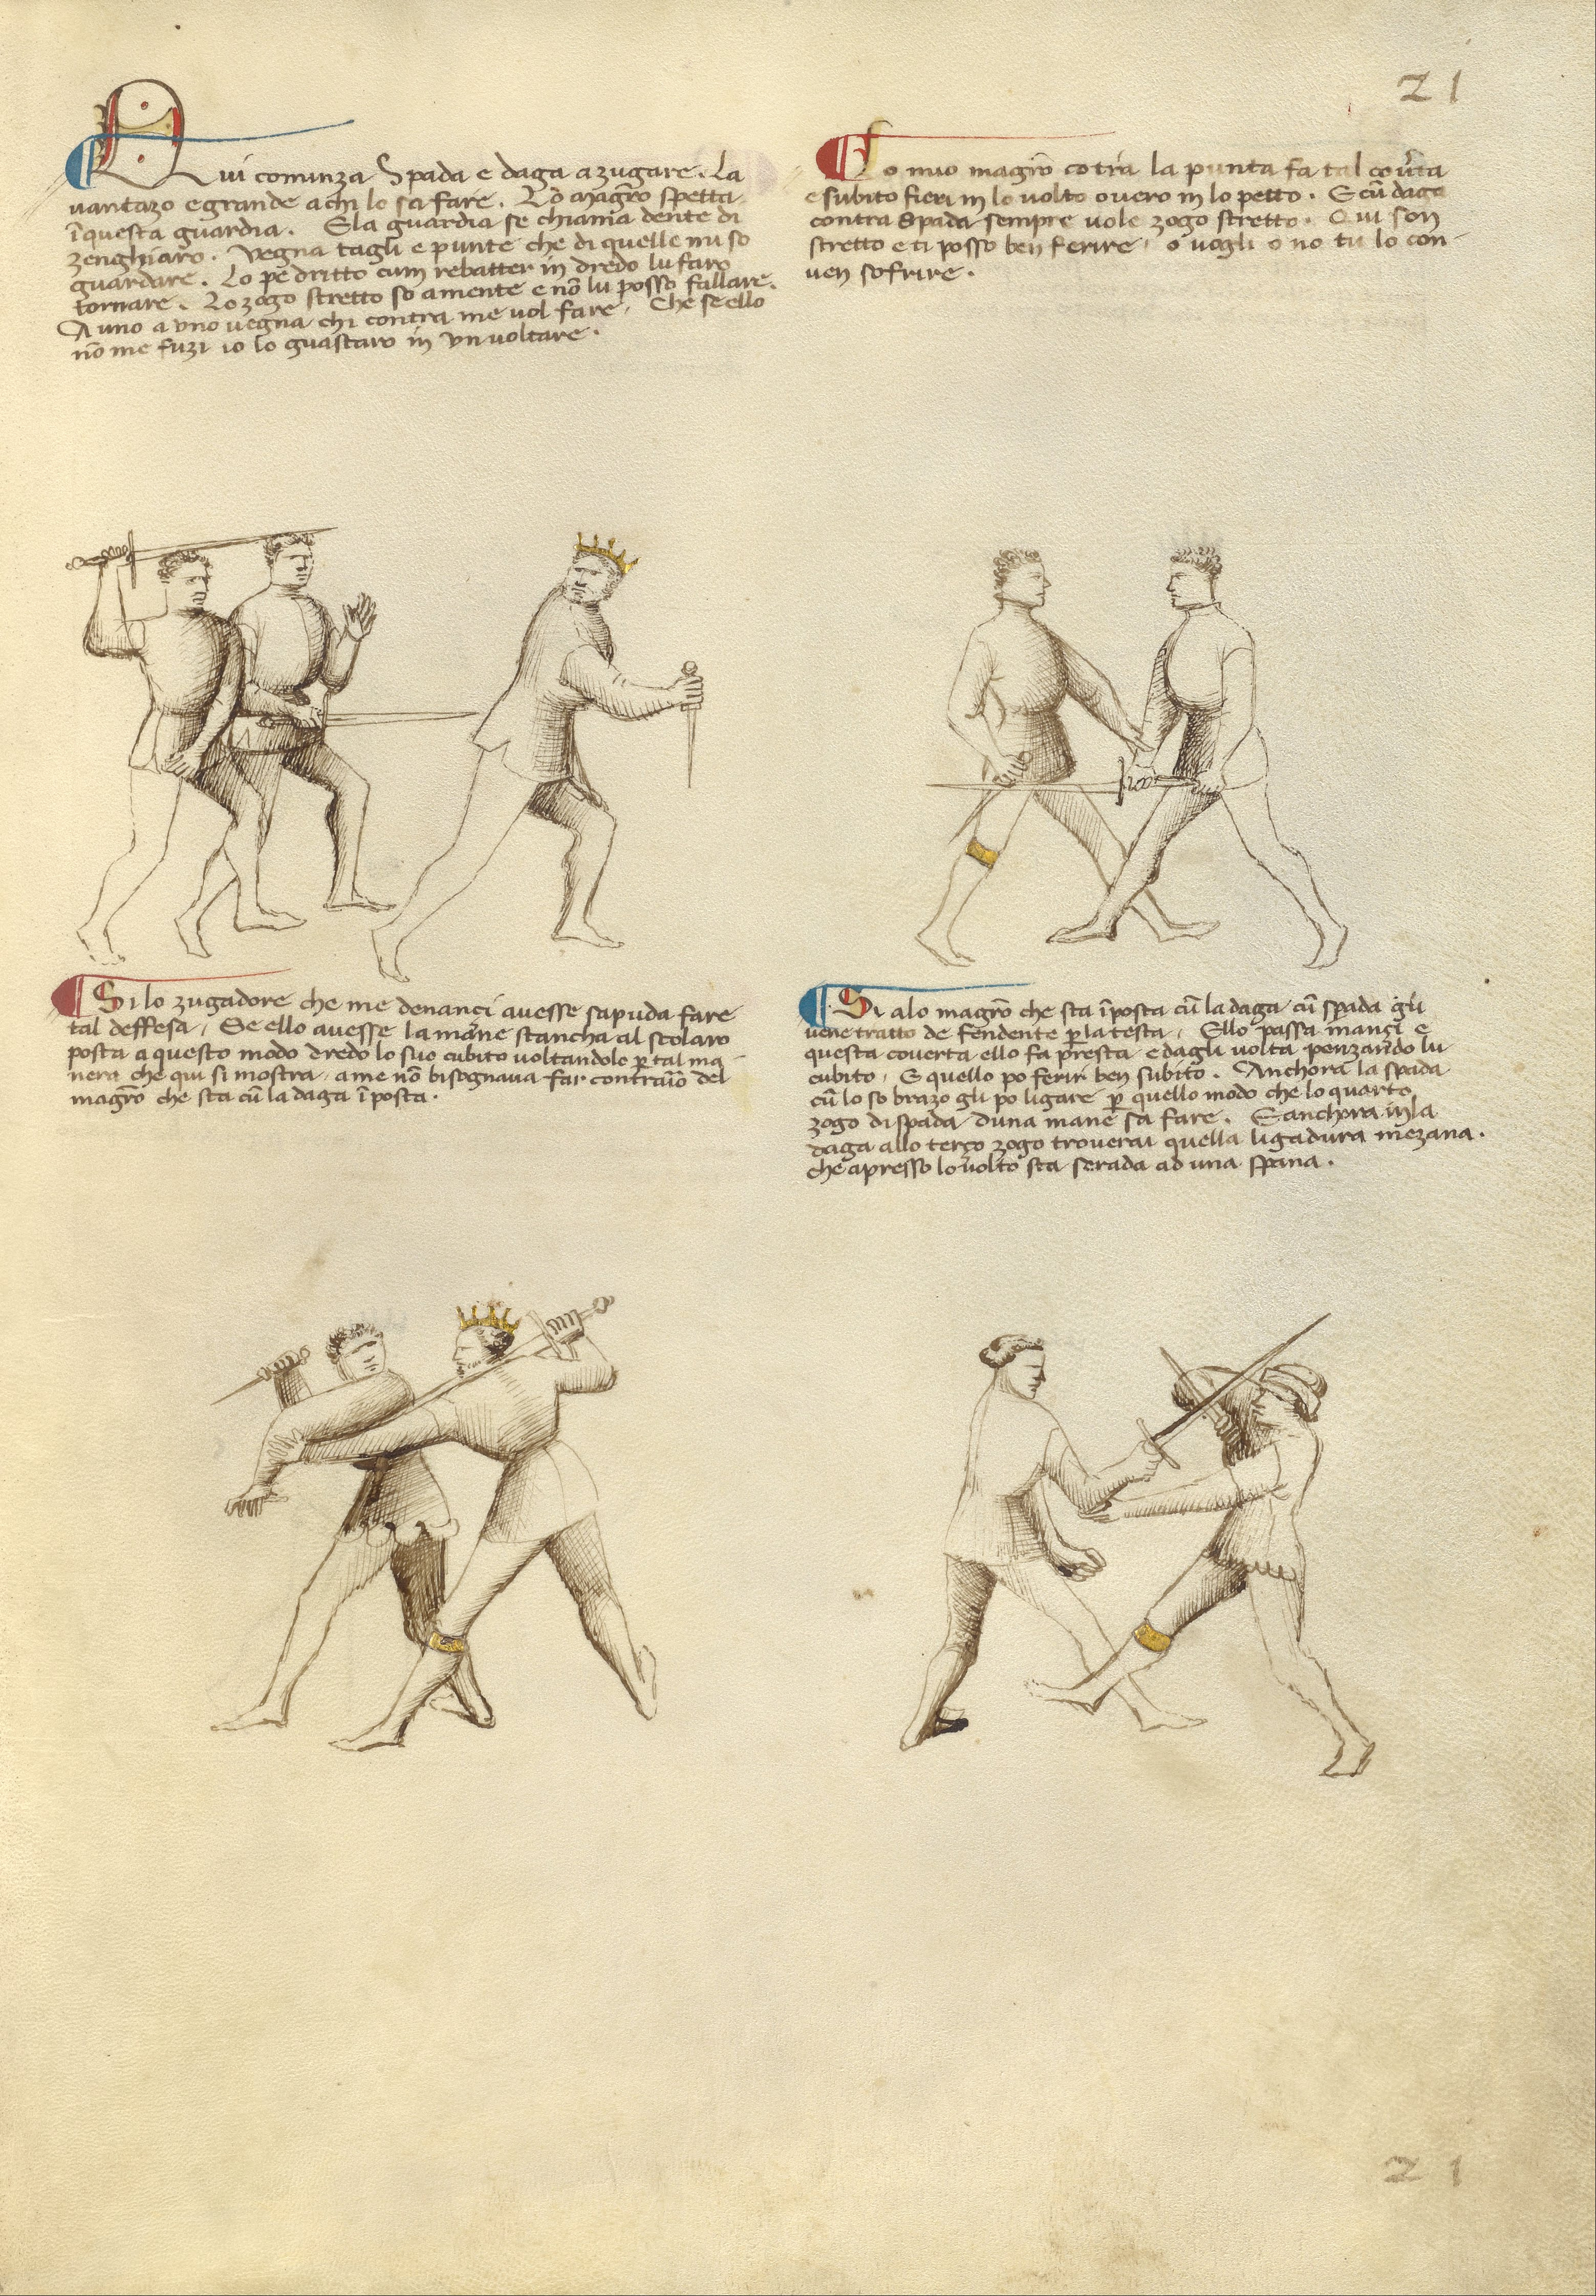 21
Qui cominza Spada e daga a zugare. La
uantazo e grande a chi lo sa fare. Lo Magr̄o spetta
ī questa guardia. E la guardia se chiama dente di
zenghiaro. Vegna tagli e punte che di quelle mi so
guardare. Lo pe dritto cum rebatter in dredo lu faro
tornare. Lo zogo stretto so a mente e nō lu posso fallare.
A uno a uno uegna chi contra me uol fare. Che se ello
nō me fuzi io lo guastaro in un uoltare.
Lo mio magr̄o cōtra la punta fa tal couerta
e subito fieri in lo uolto ouero in lo petto. E cū daga
contra Spada sempre uole zogo stretto. Qui son
stretto e ti posso ben ferire, o uogli o no tu lo con-
uen sofrire.
Si lo zugadore che me denanci auesse sapuda fare
tal deffesa, Se ello auesse la mane stancha al scolaro
posta a questo modo dredo lo suo cubito uoltandolo ꝑ tal ma-
nera che qui si mostra, a me nō bisognaua far contrario del
magr̄o che sta cū la daga ī posta.
Si a lo magr̄o che sta ī posta cū la daga cū spada gli
uene tratto de fendente ꝑ la testa, Ello passa inanci e
questa couerta ello fa presta e dagli uolta penzando lu
cubito, E quello po ferir ben subito. Anchora la spada
cū lo so brazo gli po ligare ꝑ quello modo che lo quarto
zogo di spada d una mane sa fare. E anchora in la
daga allo terço zogo trouerai quella ligadura mezana.
che apresso lo uolto sta serada ad una spana.
21